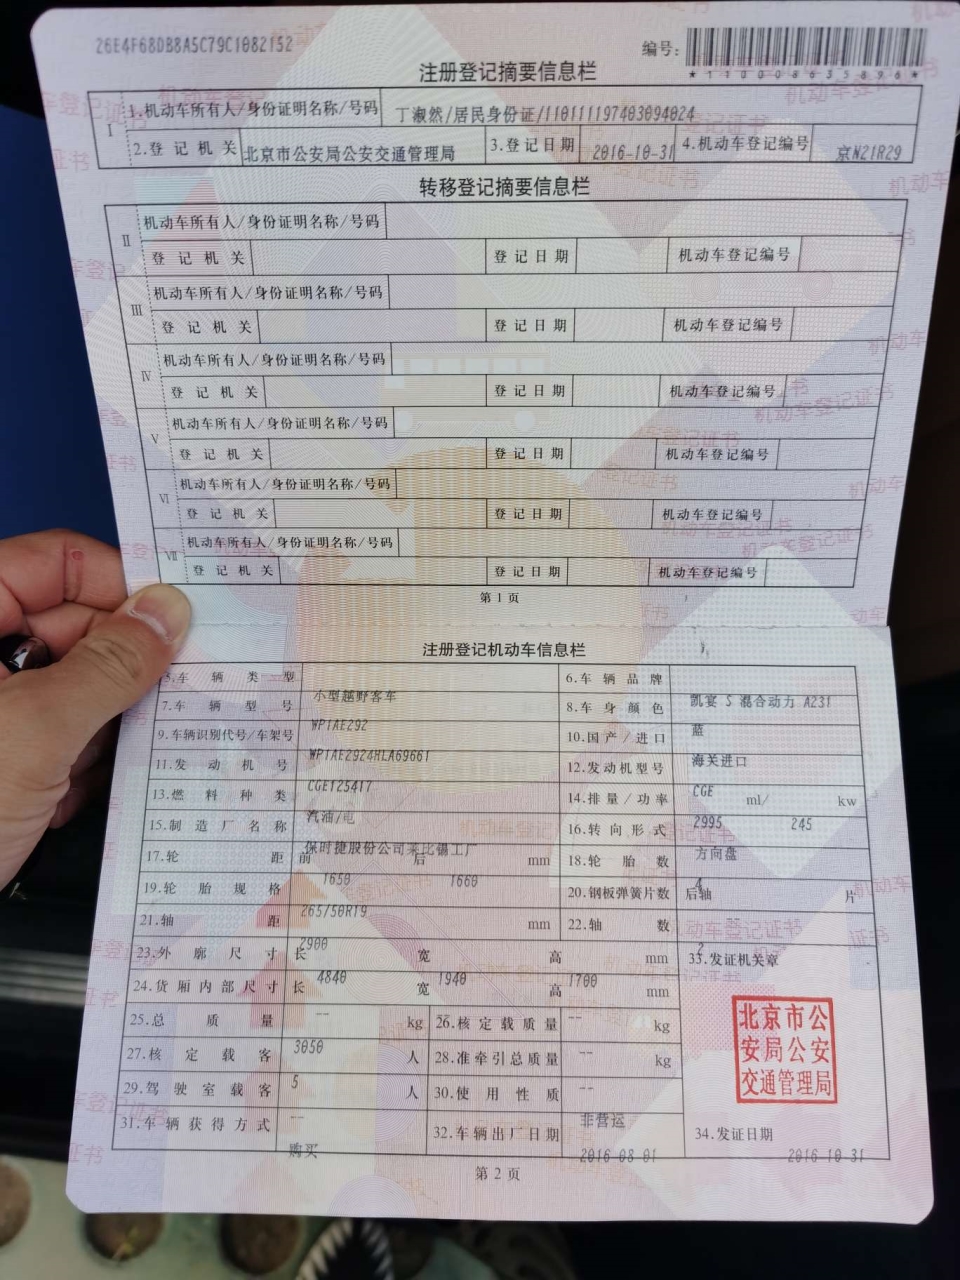 26E4F68DB8A5C79C1082152
编号：
*110008635898*
注册登记摘要信息栏
I 1.机动车所有人/身份证明名称/号码 丁淑然/居民身份证/110111197403094024
2.登记机关 北京市公安局公安交通管理局 3.登记日期 2016-10-31 4.机动车登记编号 京N21R29
转移登记摘要信息栏
II 机动车所有人/身份证明名称/号码
登记机关 登记日期 机动车登记编号
III 机动车所有人/身份证明名称/号码
登记机关 登记日期 机动车登记编号
IV 机动车所有人/身份证明名称/号码
登记机关 登记日期 机动车登记编号
V 机动车所有人/身份证明名称/号码
登记机关 登记日期 机动车登记编号
VI 机动车所有人/身份证明名称/号码
登记机关 登记日期 机动车登记编号
VII 机动车所有人/身份证明名称/号码
登记机关 登记日期 机动车登记编号
第1页
注册登记机动车信息栏
5.车辆类型 小型越野客车 6.车辆品牌 凯宴 S 混合动力 A231
7.车辆型号 WP1AE292 8.车身颜色 蓝
9.车辆识别代号/车架号 WP1AE2924HLA69661 10.国产/进口 海关进口
11.发动机号 CGE125417 12.发动机型号 CGE
13.燃料种类 汽油/电 14.排量/功率 2995 ml/ 245 kw
15.制造厂名称 保时捷股份公司莱比锡工厂 16.转向形式 方向盘
17.轮距 前 1650 后 1660 mm 18.轮胎数 4
19.轮胎规格 265/50R19 20.钢板弹簧片数 后轴 -- 片
21.轴距 2900 mm 22.轴数 2
23.外廓尺寸 长 4840 宽 1940 高 1700 mm 33.发证机关章
24.货厢内部尺寸 长 -- 宽 -- 高 -- mm
25.总质量 3050 kg 26.核定载质量 -- kg
27.核定载客 5 人 28.准牵引总质量 -- kg
29.驾驶室载客 -- 人 30.使用性质 非营运
31.车辆获得方式 购买 32.车辆出厂日期 2016-08-01 34.发证日期 2016-10-31
北京市公
安局公安
交通管理局
第2页